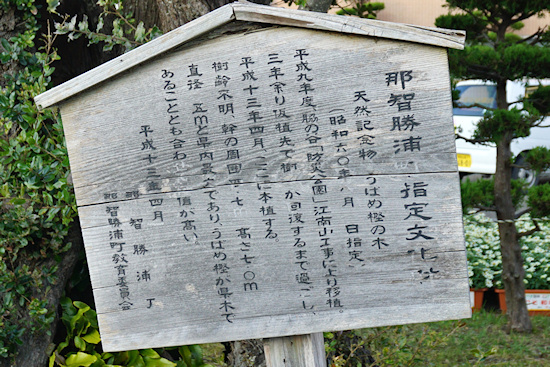 那智勝浦 指定文
天然記念物 うばめ樫の木
(昭和六〇年 八月 日指定)
平成九年度脇の谷「防災公園」江南山工事により移植。
三年余り仮植先で樹 が回復するまで過ごし、
平成十三年四月、ここに本植する。
樹齢不明、幹の周囲 七 高さ七〇m
直径 五mと県内最大であり、うばめ樫が県木で
あることとも合わ 価値が高い。
平成十三年四月
那智勝浦
那智勝浦町教育委員会